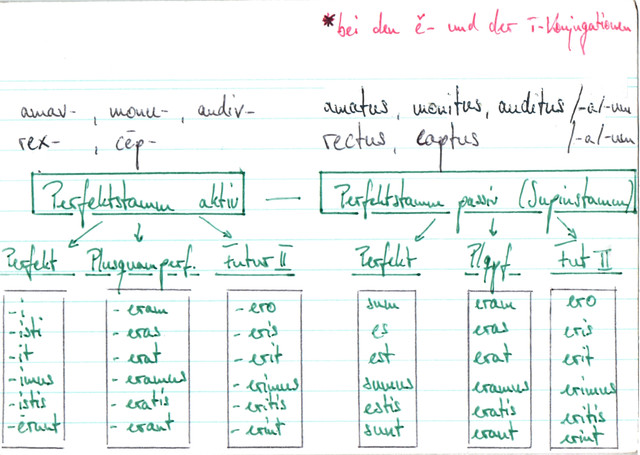 *bei den ĕ- und der ī-Konjugationen
amav-, monu-, audiv- amatus, monitus, auditus /-a/-um
rex-, cēp- rectus, captus /-a/-um
Perfektstamm aktiv — Perfektstamm passiv (Supinstamm)
Perfekt Plusquamperf. Futur II Perfekt Plqpf. Fut II
-i -eram -ero sum eram ero
-isti -eras -eris es eras eris
-it -erat -erit est erat erit
-imus -eramus -erimus sumus eramus erimus
-istis -eratis -eritis estis eratis eritis
-ērunt -erant -erint sunt erant erint